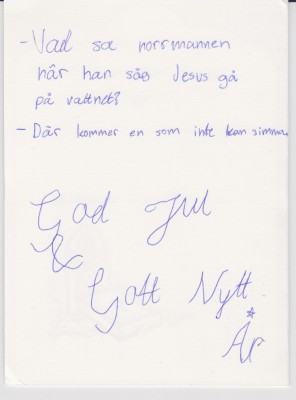 - Vad sa norrmannen
när han såg Jesus gå
på vattnet?
- Där kommer en som inte kan simma.
God Jul
&
Gott Nytt
År